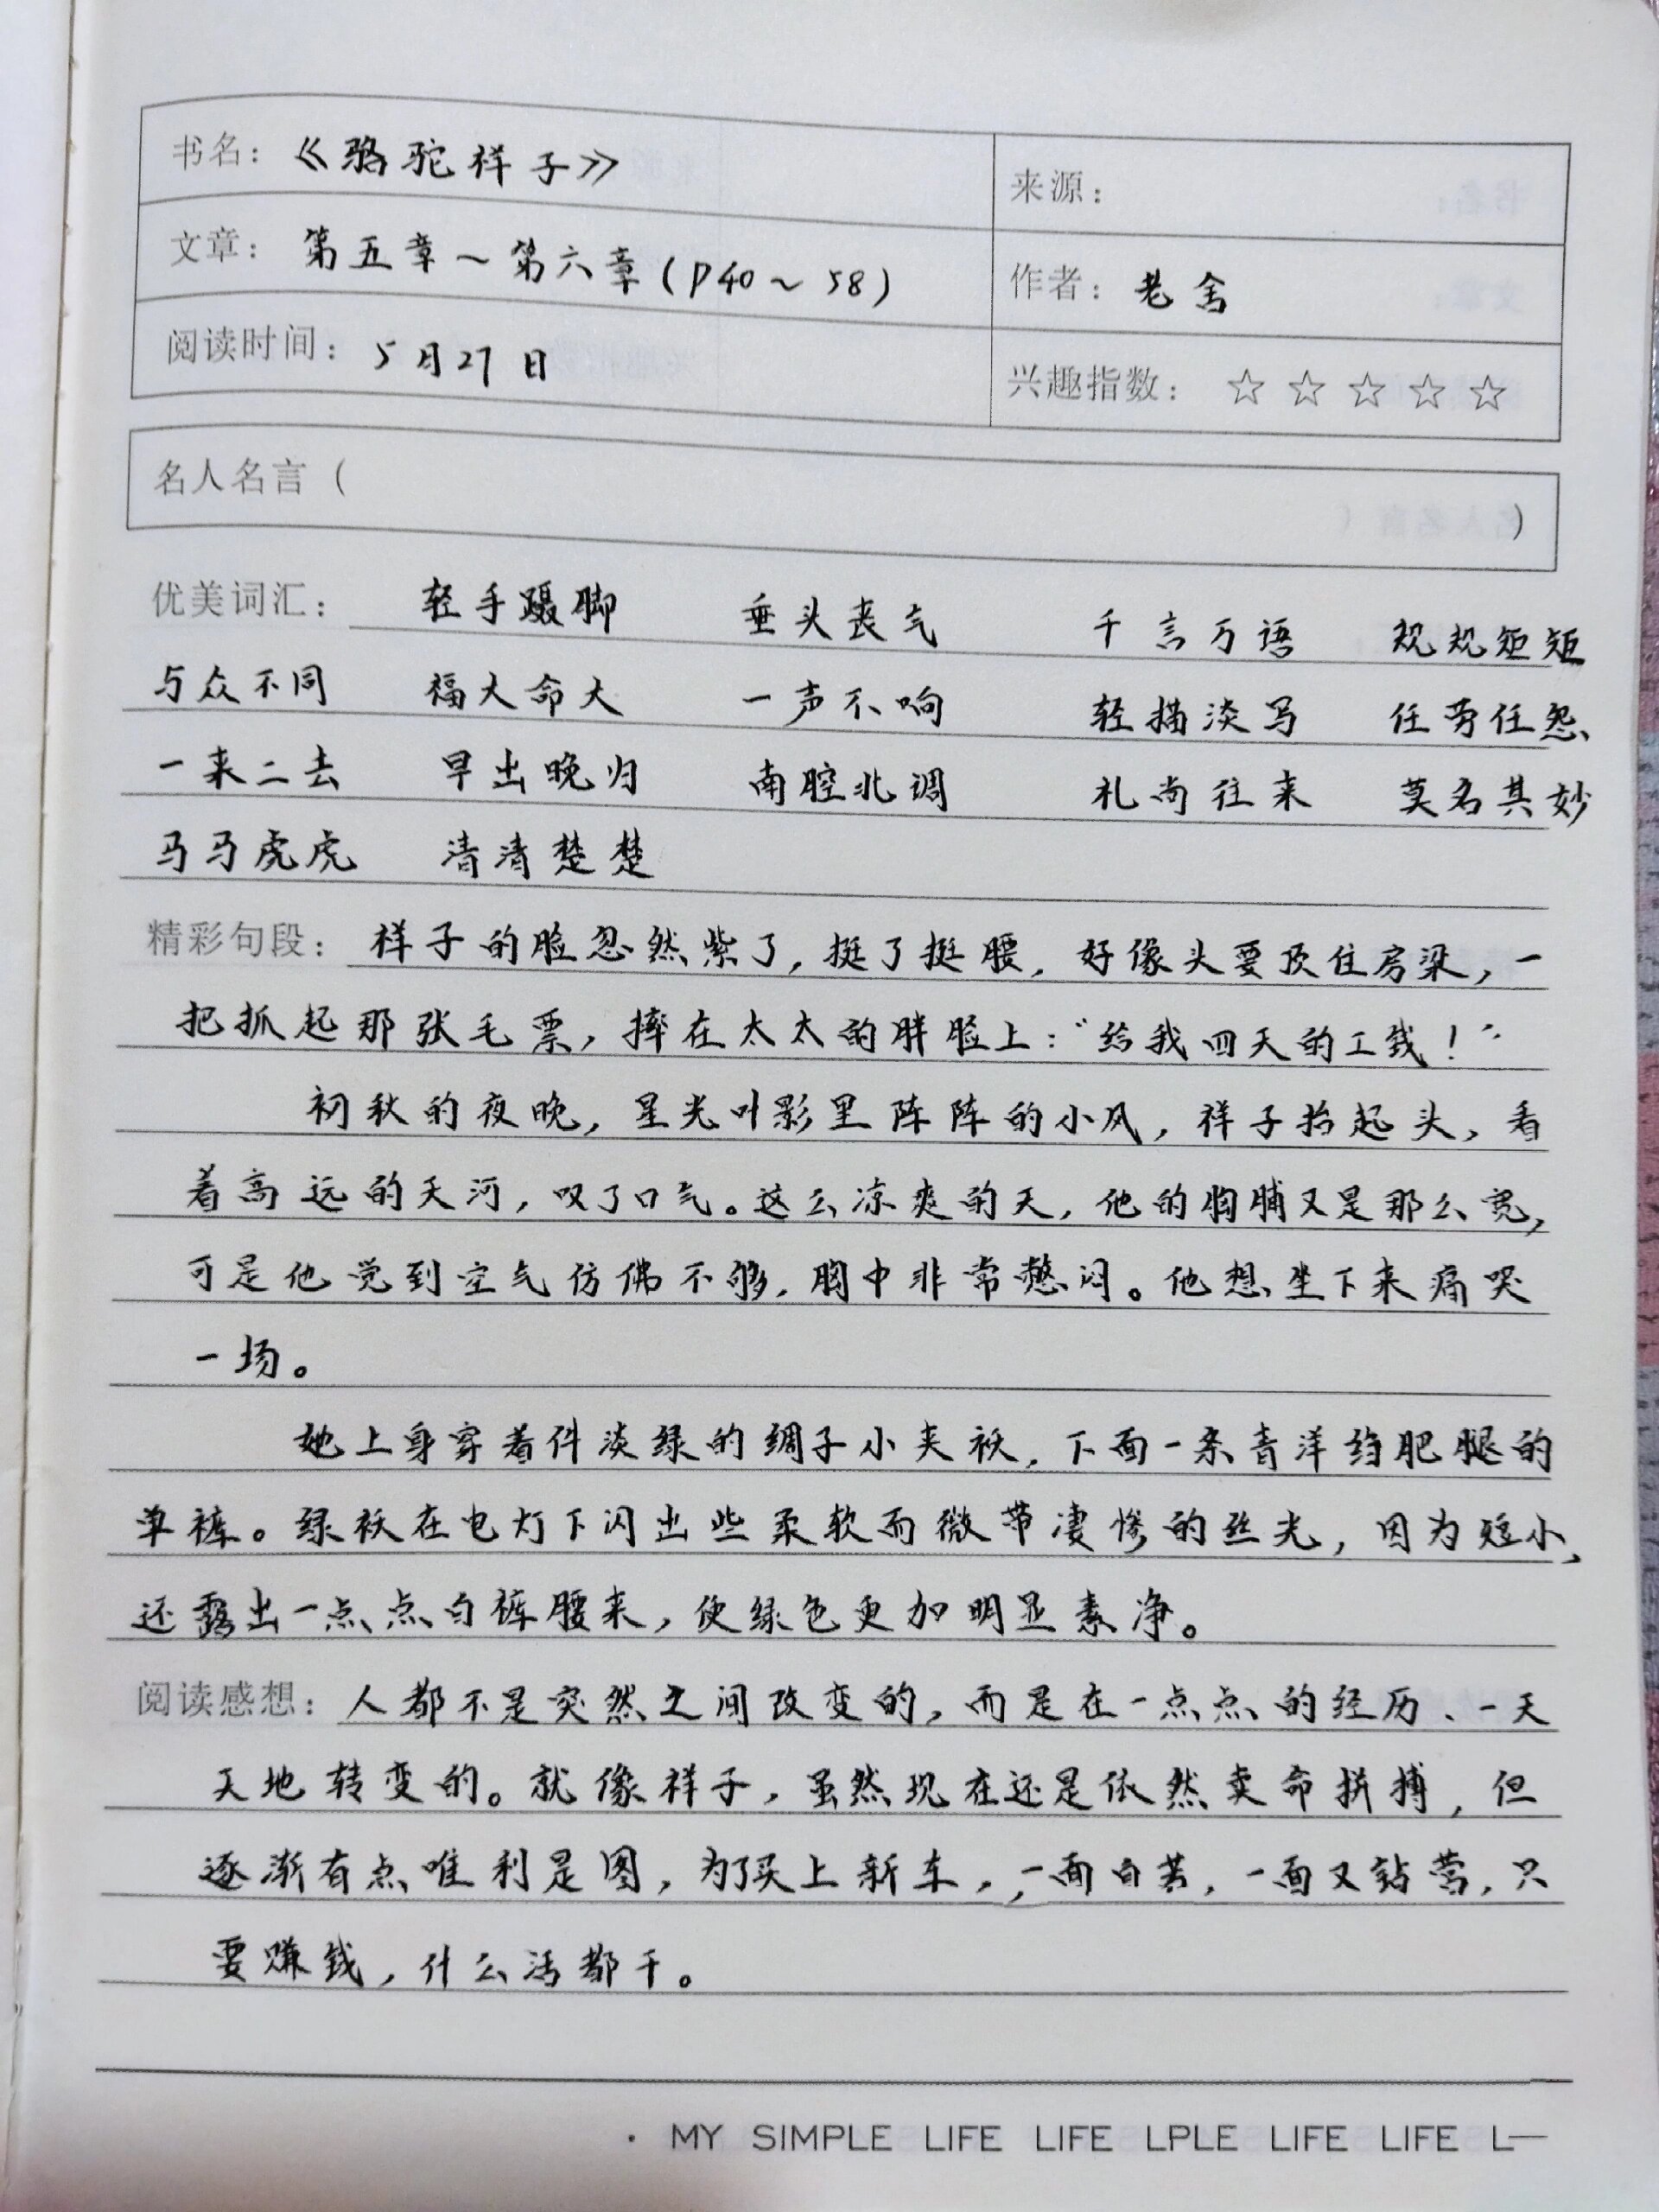 书名：《骆驼祥子》
来源：
文章：第五章～第六章(P40～58)
作者：老舍
阅读时间：5月27日
兴趣指数：☆☆☆☆☆
名人名言（ ）
优美词汇： 轻手蹑脚 垂头丧气 千言万语 规规矩矩
与众不同 福大命大 一声不响 轻描淡写 任劳任怨
一来二去 早出晚归 南腔北调 礼尚往来 莫名其妙
马马虎虎 清清楚楚
精彩句段：祥子的脸忽然紫了，挺了挺腰，好像头要顶住房梁，一
把抓起那张毛票，摔在太太的胖脸上：“给我四天的工钱！”
初秋的夜晚，星光叶影里阵阵的小风，祥子抬起头，看
着高远的天河，叹了口气。这么凉爽的天，他的胸脯又是那么宽，
可是他觉到空气仿佛不够，胸中非常憋闷。他想坐下来痛哭
一场。
她上身穿着件淡绿的绸子小夹袄，下面一条青洋绉肥腿的
单裤。绿袄在电灯下闪出些柔软而微带凄惨的丝光，因为短小，
还露出一点点白裤腰来，使绿色更加明显素净。
阅读感想：人都不是突然之间改变的，而是在一点点的经历、一天
天地转变的。就像祥子，虽然现在还是依然卖命拼搏，但
逐渐有点唯利是图，为了买上新车，，一面自苦，一面又钻营，只
要赚钱，什么活都干。
· MY SIMPLE LIFE LIFE LPLE LIFE LIFE L—